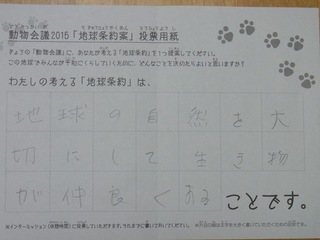 動物会議2015「地球条約案」投票用紙
きょうの「動物会議」に、あなたが考える「地球条約」を1つ提案してください。
この地球でみんなが平和にくらしていくために、どんなことを決めたらよいと思いますか?
わたしの考える「地球条約」は、
地球の自然を大
切にして生き物
が仲良くある ことです。
※インターミッション(休憩時間)に投票していただきます。それまでに書いておいてください。